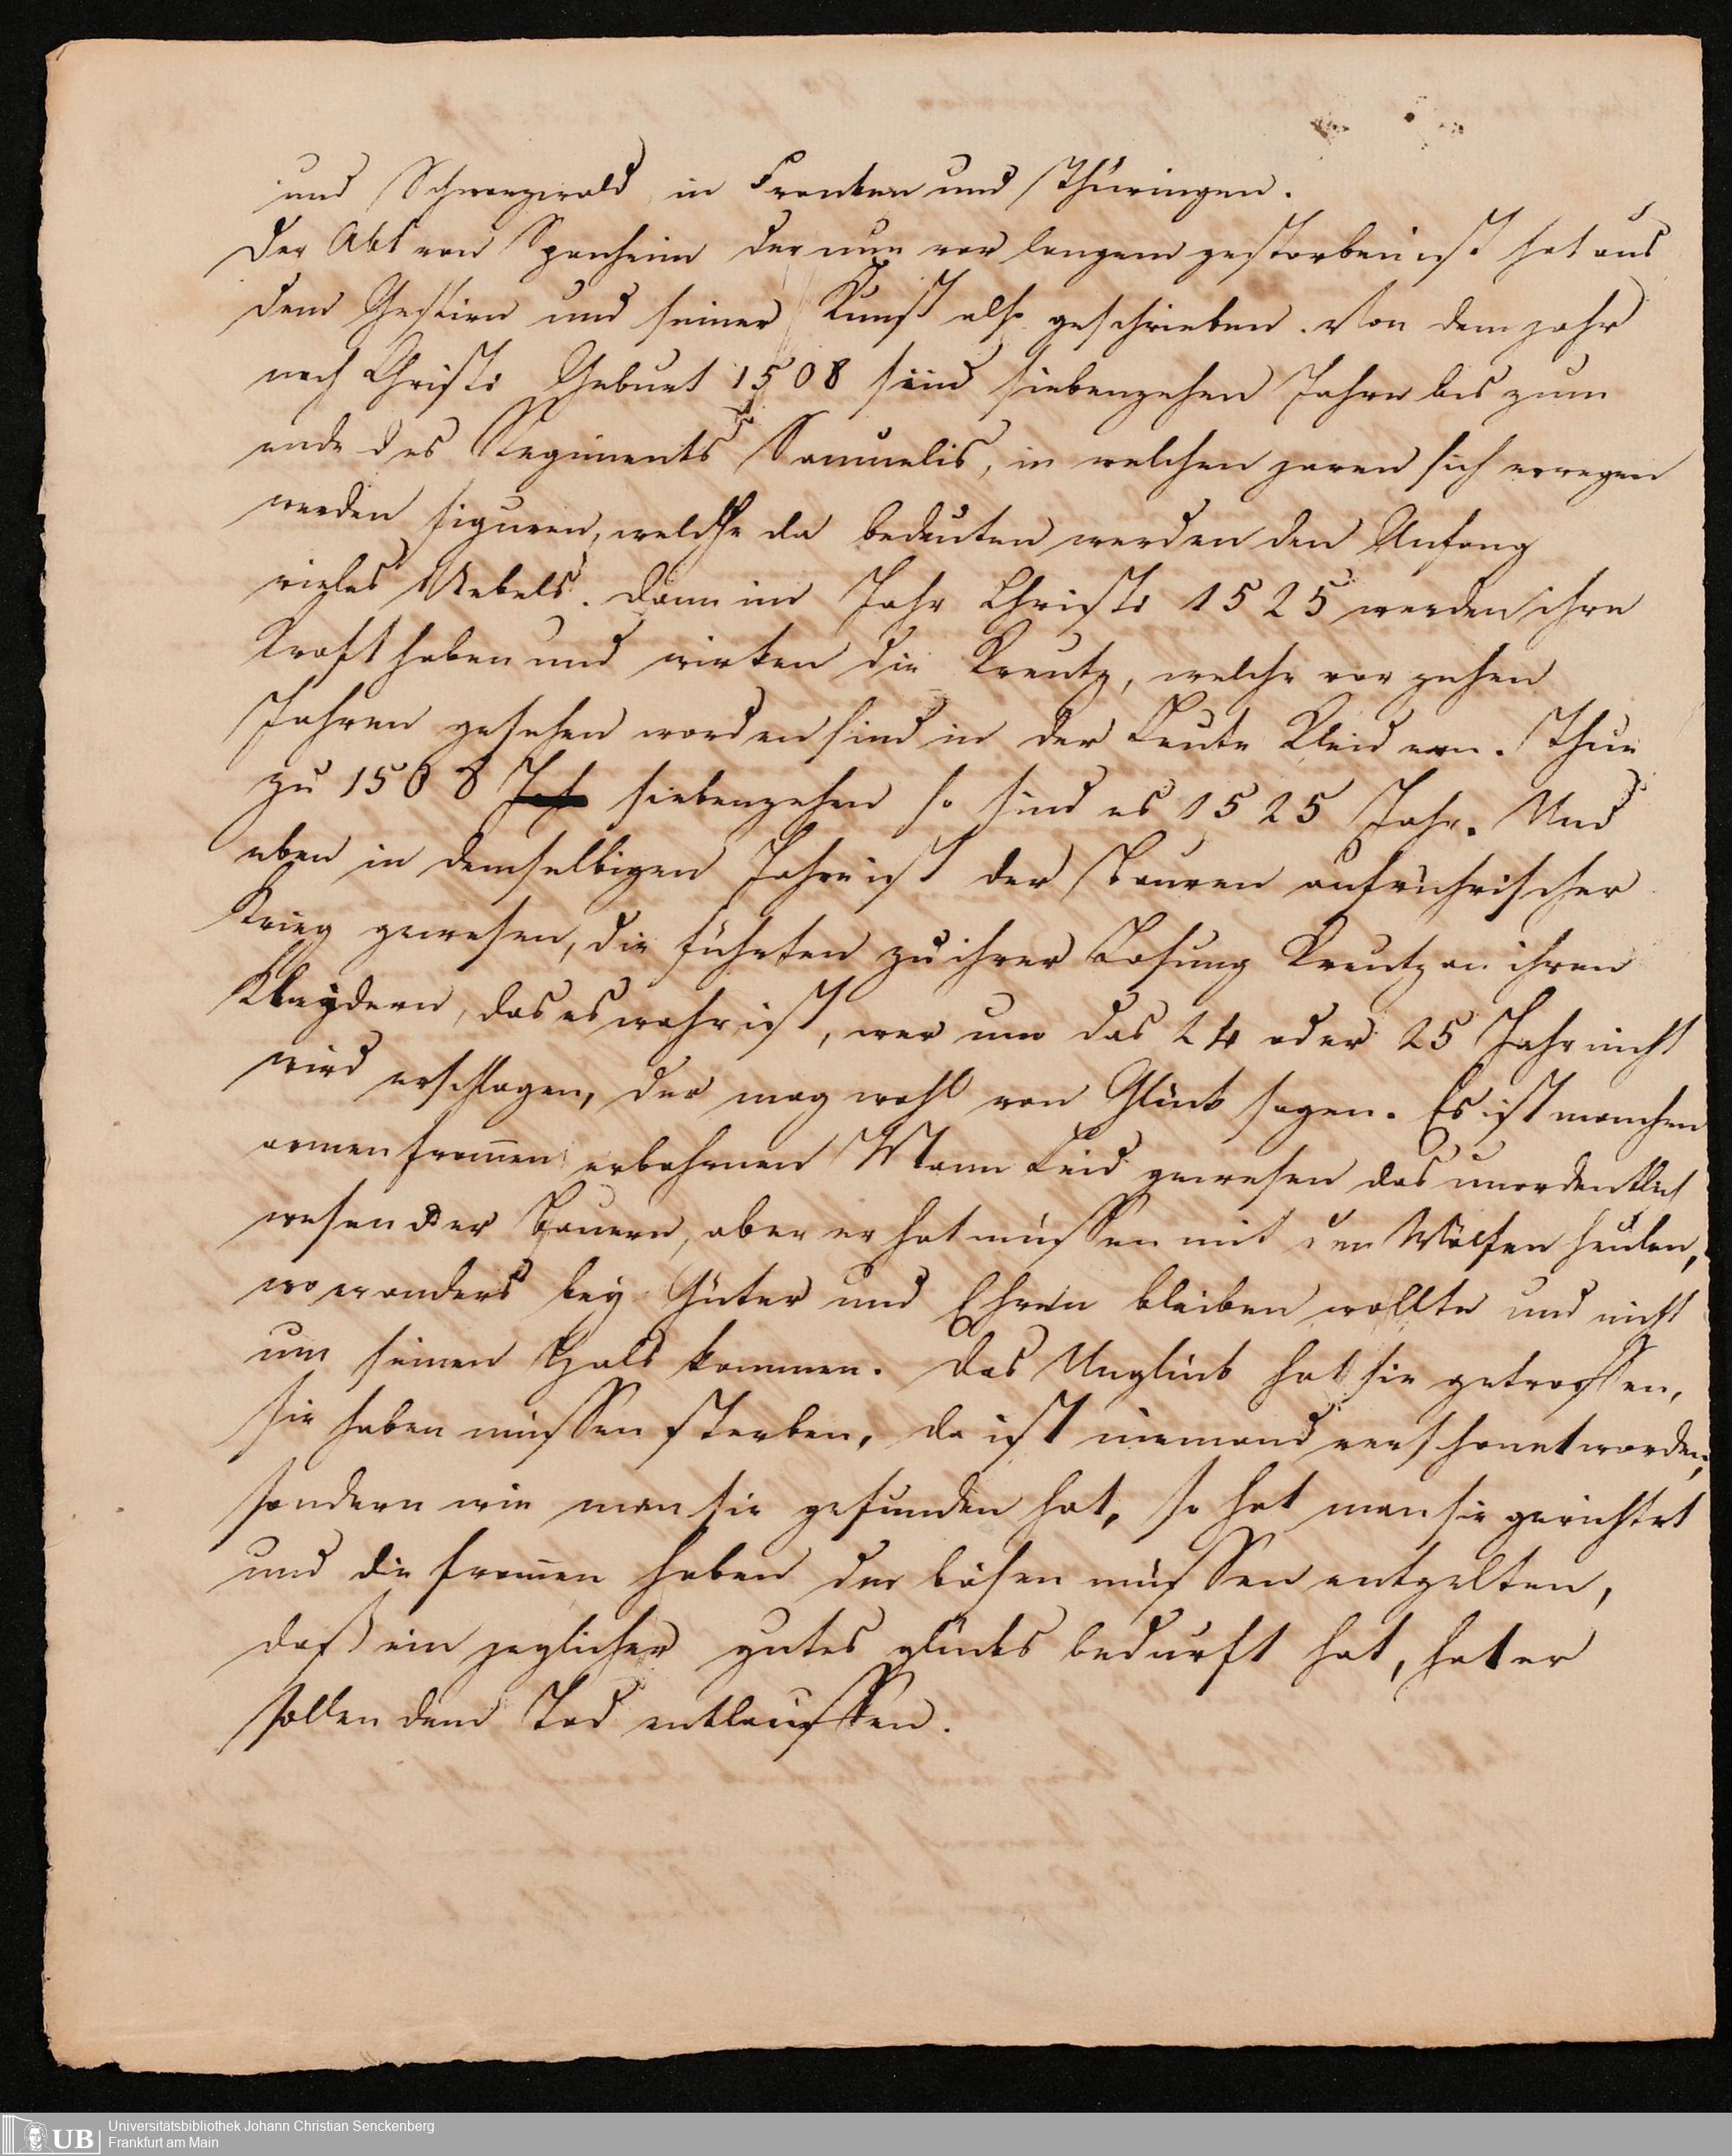 und Schwarzwald, in Franken und Thüringen.
Der Abt von Spanheim der nun vor langem gestorben ist hat aus
dem Gestirn und seiner Kunst also geschrieben. Von dem jahr
nach Christi Geburt 1508 sind siebenzehen Jahre bis zum
ende des Regiments Samuelis, in welchen jaren sich erregen
werden figuren, welche da bedeuten werden den Anfang
vieles Uebels. Dann im Jahr Christi 1525 werden ihre
Kraft haben und wirken die Kreutz, welche vor zehen
Jahren gesehen worden sind in der Leute Kleidern. Thue
zu 1508 siebenzehen so sind es 1525 Jahr. Und
eben in demselbigen Jahre ist der Bauren aufrührischer
Krieg gewesen, die führten zu ihrer Losung Kreutz an ihren
Kleydern, das es wahr ist, wer um das 24 oder 25 Jahr nicht
wird erschlagen, der mag wohl von Glück sagen. Es ist manchen
armen from̄en erbahrnen Mann Leid gewesen das unordentlich
wesen der Bauern, aber er hat müssen mit den Wölfen heulen,
wo er anders bey Güter und Ehren bleiben wollte und nicht
um seinen Hals kommen. Das Unglück hat sie getroffen,
sie haben müssen sterben, da ist niemand verschonet worden,
sondern wie man sie gefunden hat, so hat man sie gerichtet
und die from̄en haben der bösen müssen entgelten,
daß ein jeglicher gutes glücks bedurft hat, hat er
sollen dem Tod entlauffen.
UB Universitätsbibliothek Johann Christian Senckenberg
Frankfurt am Main